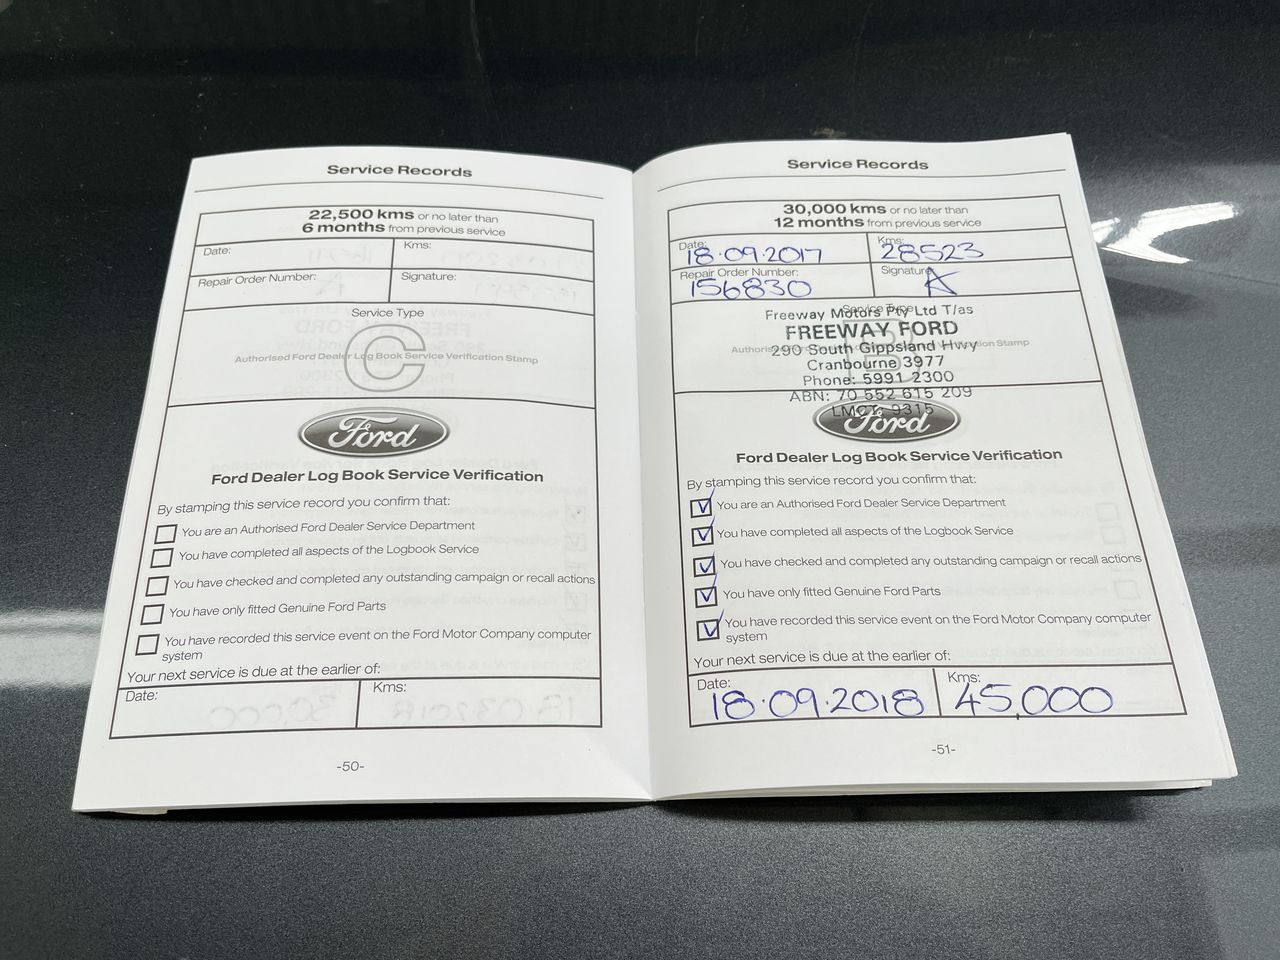 Service Records
22,500 kms or no later than
6 months from previous service
Date:
Kms:
Repair Order Number:
Signature:
Service Type
C
Authorised Ford Dealer Log Book Service Verification Stamp
Ford
Ford Dealer Log Book Service Verification
By stamping this service record you confirm that:
You are an Authorised Ford Dealer Service Department
You have completed all aspects of the Logbook Service
You have checked and completed any outstanding campaign or recall actions
You have only fitted Genuine Ford Parts
You have recorded this service event on the Ford Motor Company computer
system
Your next service is due at the earlier of:
Date:
Kms:
-50-
Service Records
30,000 kms or no later than
12 months from previous service
Date: 18.09.2017
Kms: 28523
Repair Order Number: 156830
Signature:
Service Type
Freeway Motors Pty Ltd T/as
FREEWAY FORD
B
Authorised Ford Dealer Log Book Service Verification Stamp
290 South Gippsland Hwy
Cranbourne 3977
Phone: 5991 2300
ABN: 70 552 615 209
LMCT: 9315
Ford
Ford Dealer Log Book Service Verification
By stamping this service record you confirm that:
You are an Authorised Ford Dealer Service Department
You have completed all aspects of the Logbook Service
You have checked and completed any outstanding campaign or recall actions
You have only fitted Genuine Ford Parts
You have recorded this service event on the Ford Motor Company computer
system
Your next service is due at the earlier of:
Date: 18.09.2018
Kms: 45,000
-51-